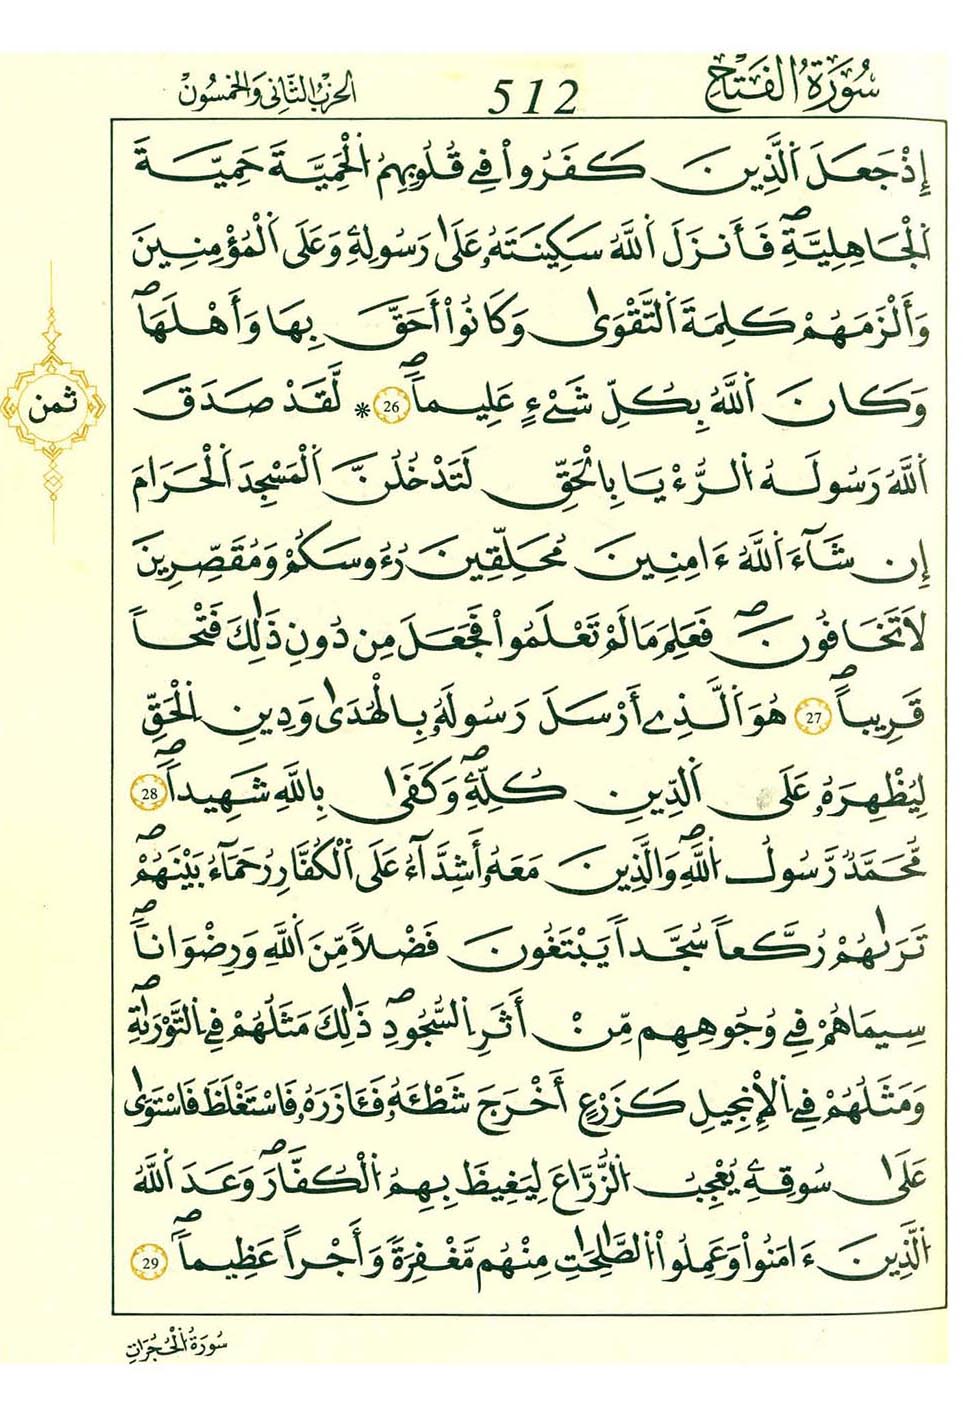 سُورَةُ الْفَتْحِ
512
الحزب الثاني والخمسون
إِذْ جَعَلَ اَ۬لذِينَ كَفَرُواْ فِے قُلُوبِهِمُ اُ۬لْحَمِيَّةَ حَمِيَّةَ
اَ۬لْجَٰهِلِيَّةِۖ فَأَنزَلَ اَ۬للَّهُ سَكِينَتَهُۥ عَلَىٰ رَسُولِهِۦ وَعَلَى اَ۬لْمُؤْمِنِينَ
وَأَلْزَمَهُمْ كَلِمَةَ اَ۬لتَّقْوَىٰ وَكَانُواْ أَحَقَّ بِهَا وَأَهْلَهَاۖ
وَكَانَ اَ۬للَّهُ بِكُلِّ شَےْءٍ عَلِيماٗۖ 26 * لَّقَدْ صَدَقَ
اَ۬للَّهُ رَسُولَهُ اُ۬لرُّءْيَا بِالْحَقِّ لَتَدْخُلُنَّ اَ۬لْمَسْجِدَ اَ۬لْحَرَامَ
إِن شَآءَ اَ۬للَّهُ ءَامِنِينَ مُحَلِّقِينَ رُءُوسَكُمْ وَمُقَصِّرِينَ
لَا تَخَافُونَۖ فَعَلِمَ مَا لَمْ تَعْلَمُواْ فَجَعَلَ مِن دُونِ ذَٰلِكَ فَتْحاٗ
قَرِيباًۖ 27 هُوَ اَ۬لذِے أَرْسَلَ رَسُولَهُۥ بِالْهُدَىٰ وَدِينِ اِ۬لْحَقِّ
لِيُظْهِرَهُۥ عَلَى اَ۬لدِّينِ كُلِّهِۦۖ وَكَفَىٰ بِاللَّهِ شَهِيداٗۖ 28
مُّحَمَّدٞ رَّسُولُ اُ۬للَّهِۖ وَالذِينَ مَعَهُۥ أَشِدَّآءُ عَلَى اَ۬لْكُفَّارِ رُحَمَآءُ بَيْنَهُمْۖ
تَرَىٰهُمْ رُكَّعاٗ سُجَّداٗ يَبْتَغُونَ فَضْلاٗ مِّنَ اَ۬للَّهِ وَرِضْوَٰناٗۖ
سِيمَاهُمْ فِے وُجُوهِهِم مِّنْ أَثَرِ اِ۬لسُّجُودِۖ ذَٰلِكَ مَثَلُهُمْ فِے اِ۬لتَّوْرَىٰةِۖ
وَمَثَلُهُمْ فِے اِ۬لْإِنجِيلِ كَزَرْعٍ أَخْرَجَ شَطْـَٔهُۥ فَـَٔازَرَهُۥ فَاسْتَغْلَظَ فَاسْتَوَىٰ
عَلَىٰ سُوقِهِۦ يُعْجِبُ اُ۬لزُّرَّاعَ لِيَغِيظَ بِهِمُ اُ۬لْكُفَّارَۖ وَعَدَ اَ۬للَّهُ
اُ۬لذِينَ ءَامَنُواْ وَعَمِلُواْ اُ۬لصَّٰلِحَٰتِ مِنْهُم مَّغْفِرَةٗ وَأَجْراً عَظِيماٗۖ 29
ثمن
سُورَةُ الْحُجُرَاتِ